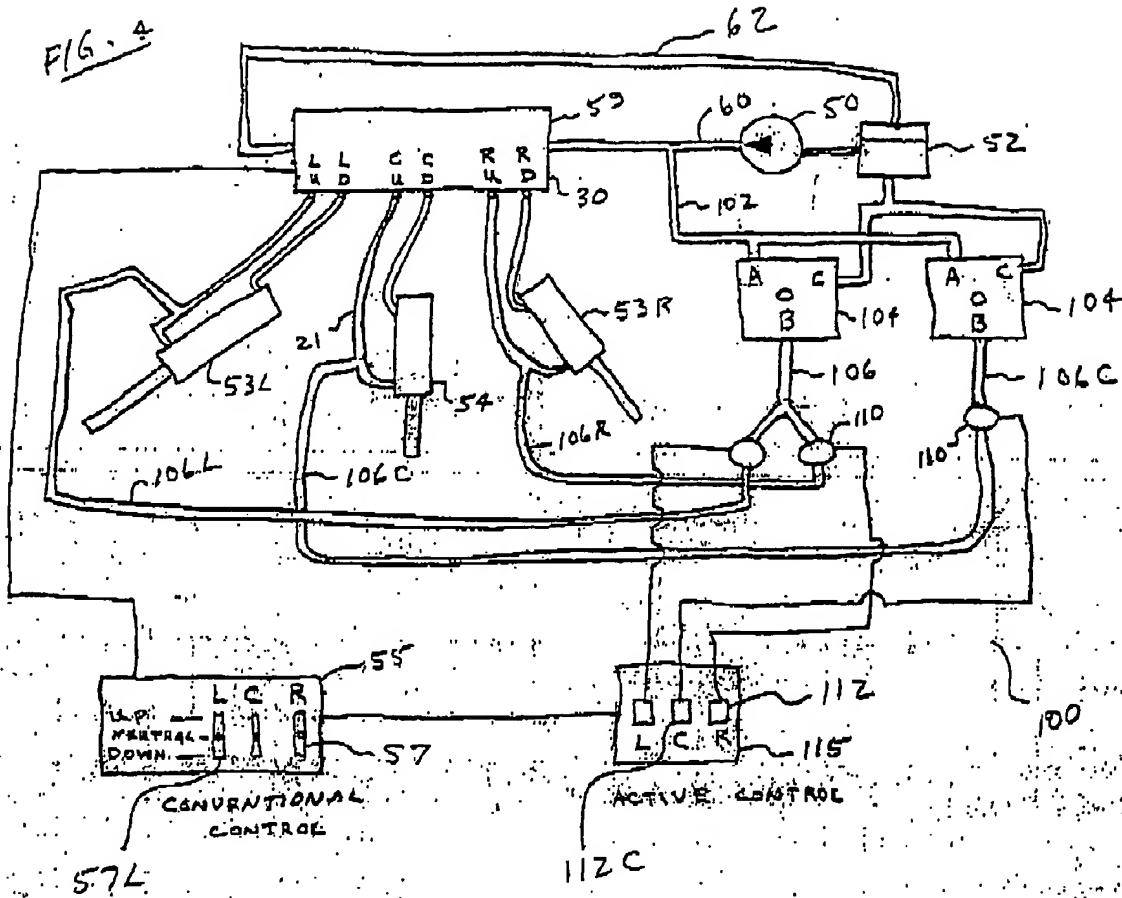 FIG. 4
62
59
60
50
52
L U
L D
C U
C D
R U
R D
30
102
A C
O
B
104
A C
O
B
104
53R
53L
21
54
106
106C
106R
110
110
106L
106C
55
L C R
UP
NEUTRAL
DOWN
57
CONVENTIONAL
CONTROL
57L
L C R
112
115
ACTIVE CONTROL
112C
100